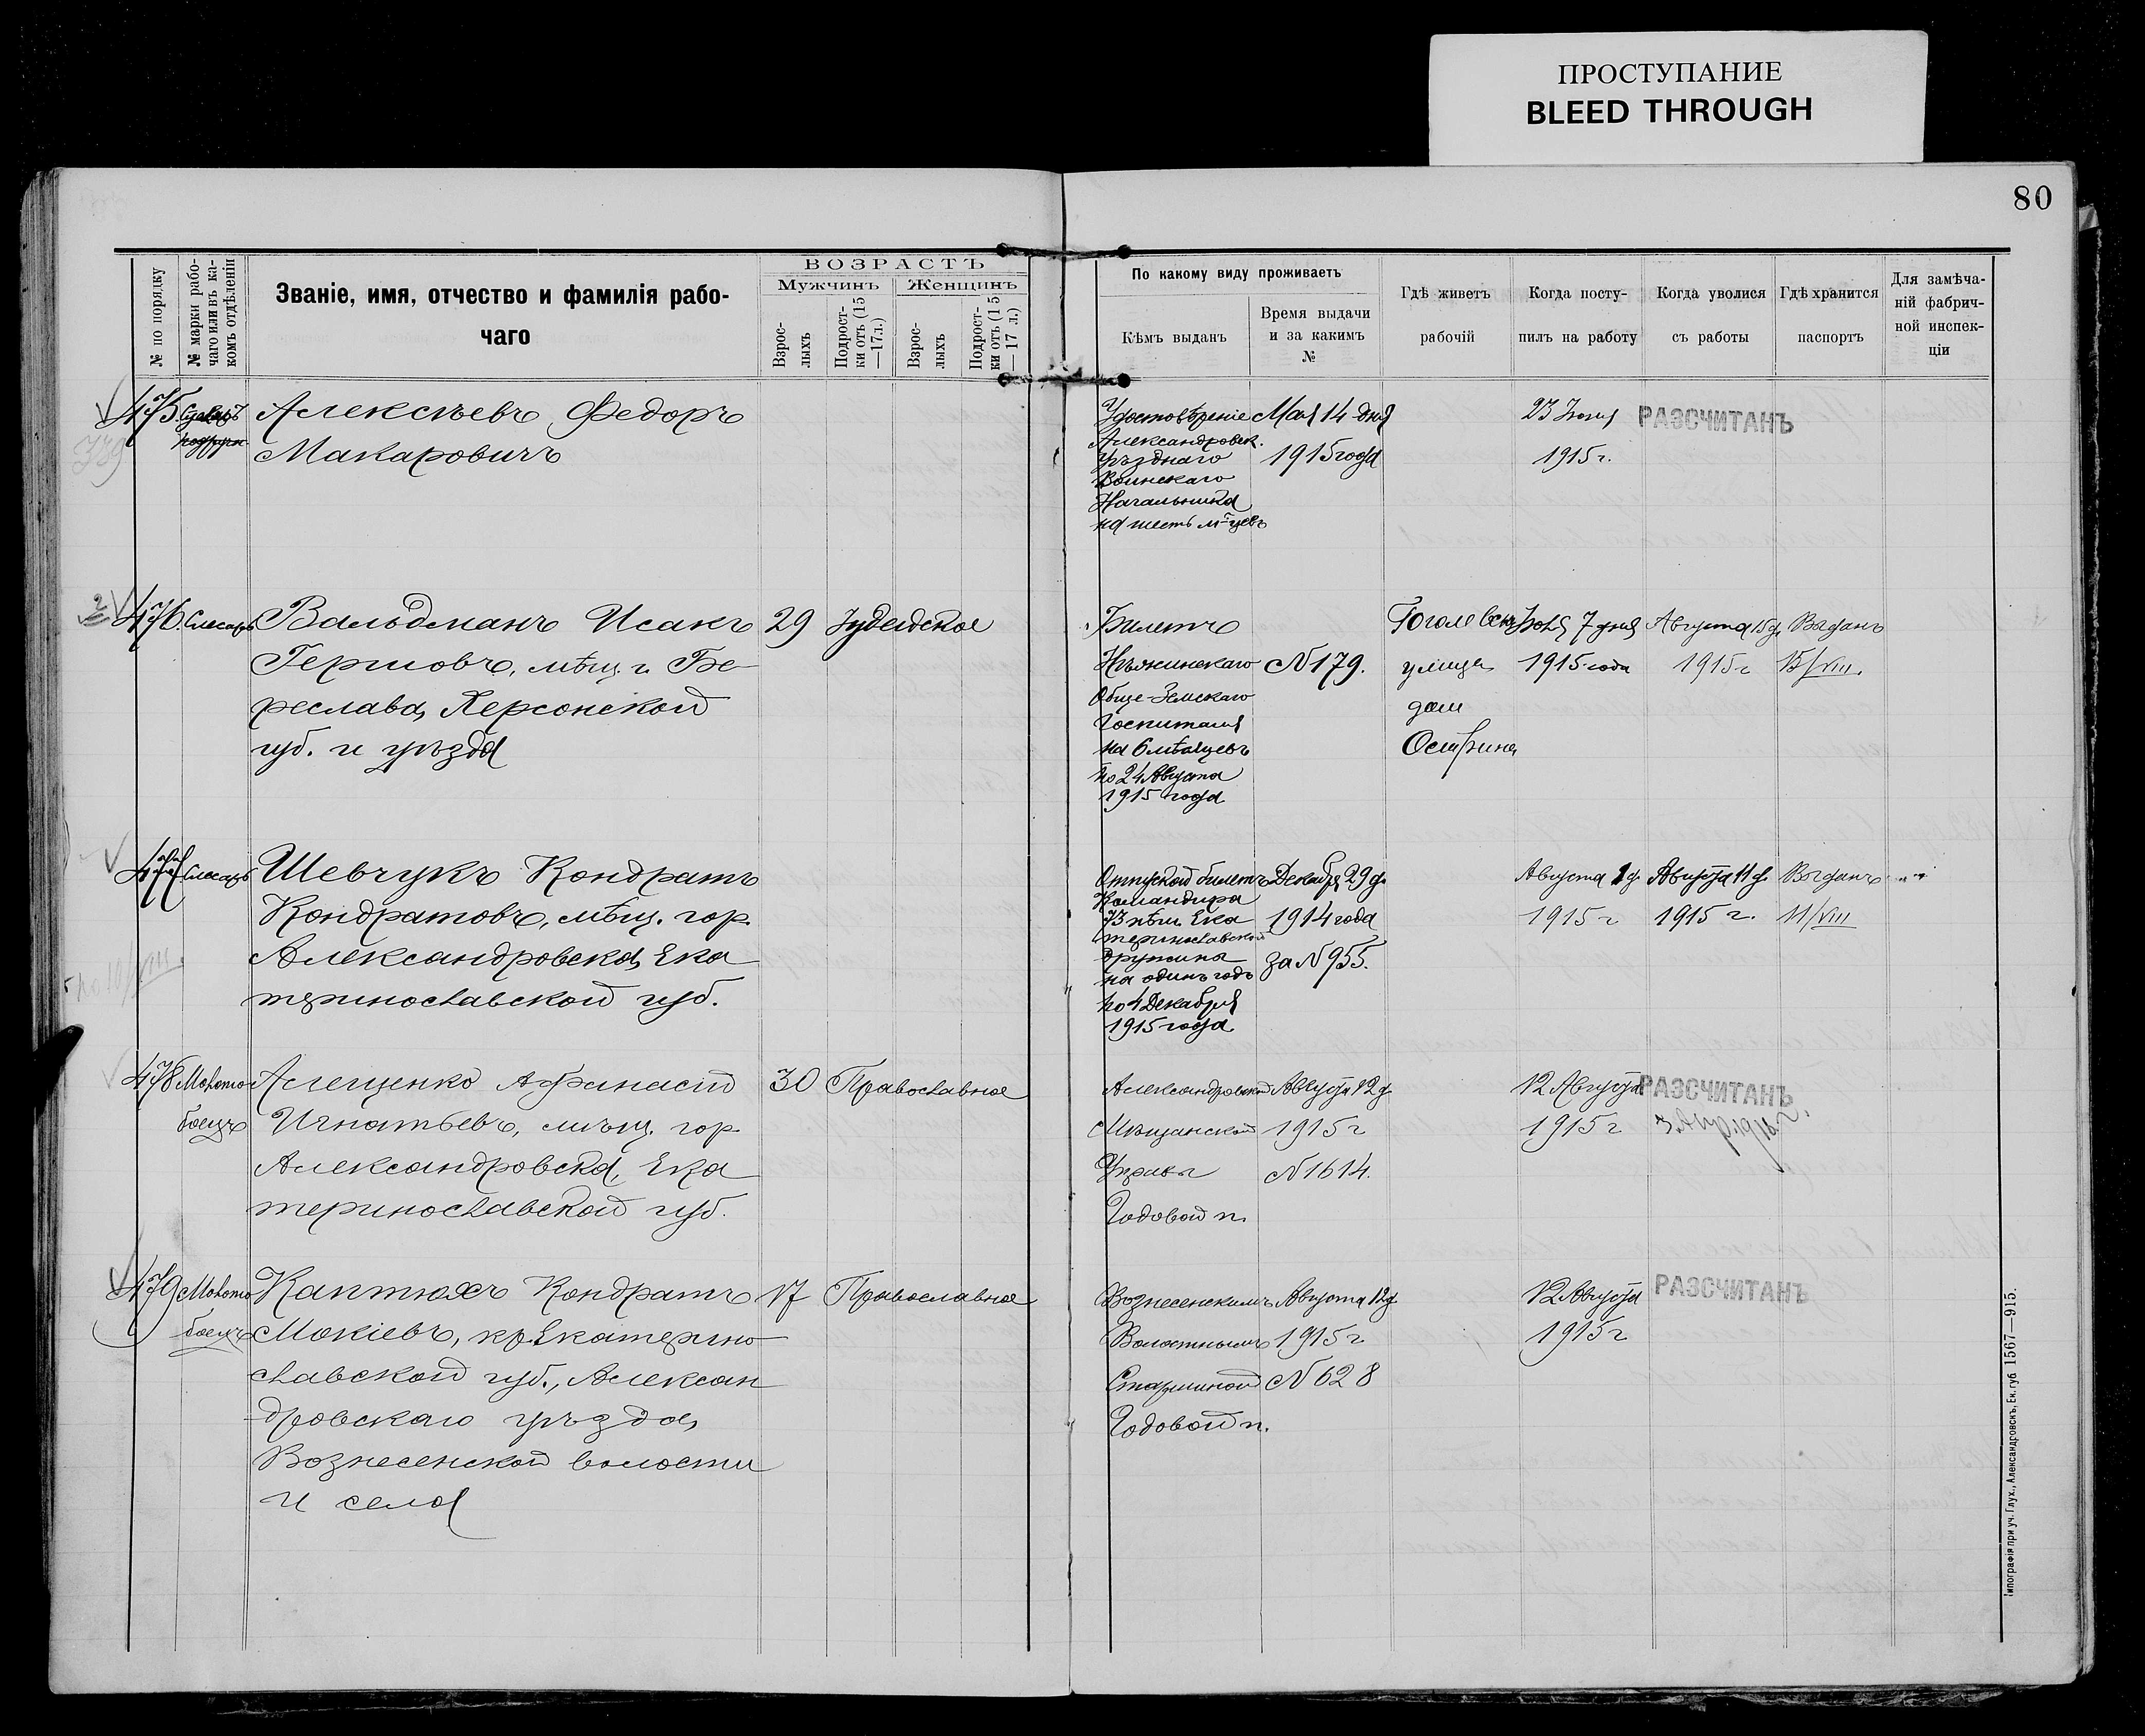 ПРОСТУПАНИЕ
BLEED THROUGH
80
№ по порядку
№ марки рабо-
чаго или въ ка-
комъ отдѣленіи
Званіе, имя, отчество и фамилія рабо-
чаго
ВОЗРАСТЪ
Мужчинъ
Женщинъ
Взрос-
лыхъ
Подрост-
ки отъ (15
—17л.)
Взрос-
лыхъ
Подрост-
ки отъ (15
— 17 л.)
По какому виду проживаетъ
Кѣмъ выданъ
Время выдачи
и за какимъ
№
Гдѣ живетъ
рабочій
Когда посту-
пилъ на работу
Когда уволися
съ работы
Гдѣ хранится
паспортъ
Для замѣча-
ній фабрич-
ной инспек-
ціи
475.
Алексѣевъ Федоръ
Макаровичъ
Удостовѣреніе
Александровск.
Уѣзднаго
Воинскаго
Начальника
на шесть м-цевъ
Мая 14 дня
1915 года
23 Іюня
1915 г.
РАЗСЧИТАНЪ
476. Слесарь
Вальдманъ Исакъ
Гершовъ, мѣщ. г. Бе-
реслава, Херсонской
губ. и уѣзда
29 Іудейское
Билетъ
Нѣжинскаго
Обще-Земскаго
Госпиталя
на 6 мѣсяцевъ
по 24 Августа
1915 года
№ 179.
улица
дом
7 дня
1915 года
Августа 15 д.
1915 г
Выданъ
15/VIII.
477 Слесарь
Шевчукъ Кондратъ
Кондратовъ, мѣщ. гор.
Александровска, Ека
теринославской губ.
по 10/VIII.
Отпускной билетъ
Командира
73 пѣш. Ека
теринославской
дружины
на одинъ годъ
по 4 Декабря
1915 года
Декабря 29 д.
1914 года
за № 955.
Августа 1 д.
1915 г
Августа 11 д.
1915 г.
Выданъ
11/VIII
478 Молото
боецъ
Алещенко Афанасій
Игнатьевъ, мѣщ. гор.
Александровска, Ека
теринославской губ.
30 Православное
Александровской
Мѣщанской
Управы
Годовой п.
Августа 12 д.
1915 г
№ 1614.
12 Августа
1915 г
РАЗСЧИТАНЪ
479 Молото
боецъ
Каптюхъ Кондратъ
Мокіевъ, кр. Екатерино
славской губ., Алексан
дровскаго уѣзда,
Вознесенской волости
и села
17 Православное
Вознесенскимъ
Волостнымъ
Старшиной
Годовой п.
Августа 12 д.
1915 г
№ 628
12 Августа
1915 г
РАЗСЧИТАНЪ
Типографія при уч. Глух., Александровскъ, Ек. губ 1567—915.